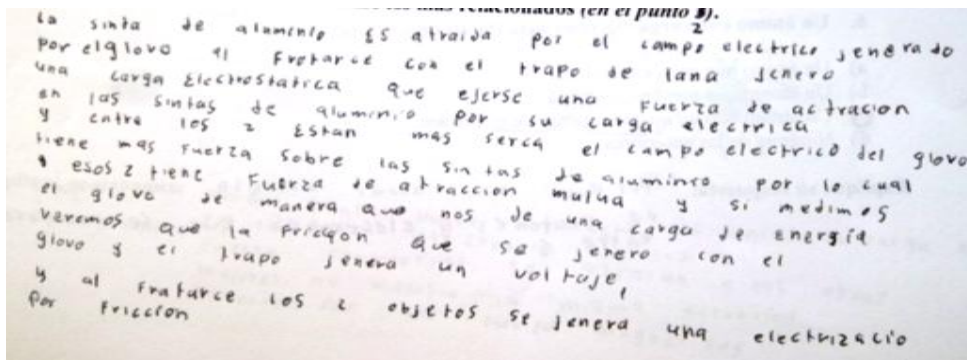 los más relacionados (en el punto 2).
la sinta de aluminio es atraida por el campo electrico jenerado
por el glovo al Frotarce con el trapo de lana jenero
una carga Electrostatica que ejerse una Fuerza de actracion
en las sintas de aluminio por su carga electrica
y entre los 2 Estan mas serca el campo electrico del glovo
tiene mas Fuerza sobre las sintas de aluminio por lo cual
esos 2 tiene Fuerza de atraccion mutua y si medimos
el glovo de manera que nos de una carga de energía
veremos que la Friccion que se jenero con el
glovo y el trapo jenera un voltaje,
y al Frotarce los 2 objetos se jenera una electrizacio
por Friccion